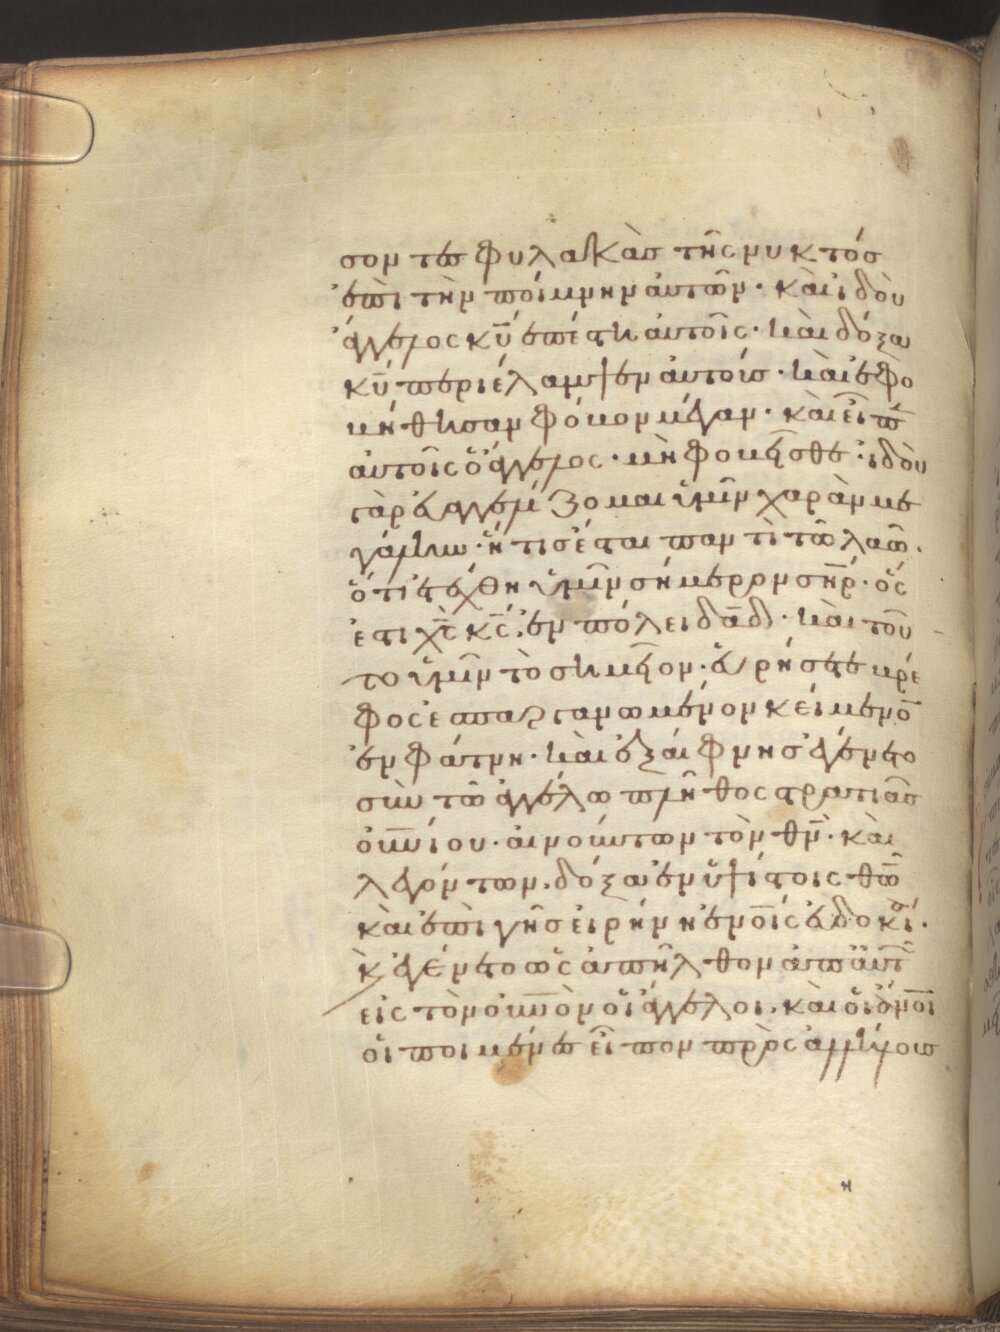 σοντες φυλακὰς τῆς νυκτός
ἐπὶ τὴν ποίμνην ἀυτῶν· κὰι ἰδὸυ
ἄγγελος κῡ ἐπέστη ἀυτοῖς· κὰι δόξα
κῡ περιέλαμψεν ἀυτοίς· κὰι ἐφο
βήθησαν φόβον μέγαν· κὰι εἶπεν
ἀυτοῖς ὁ ἄγγελος· μὴ φοβεῖσθε· ἰδὸυ
γὰρ ἐυαγγελίζομαι ὑμῖν χαρὰν με
γάλην· ἥτις ἔσται παντὶ τῶ λαῶ·
ὅτι ἐτέχθη ὑμῖν σήμερρον σ̄η̄ρ̄· ὅς
ἐστι χ̄ς̄ κ̄ς̄· ἐν πόλει δᾱδ· κὰι τοῦ
το ὑμῖν τὸ σημεῖον· ἑυρήσετε βρέ
φος ἐσπαργανωμένον κείμενον
ἐν φάτνη· κὰι ἐξάιφνης ἐγένετο
σὺν τῶ ἀγγέλω πλῆθος στρατιᾶς
ὀυνίου· ἀινούντων τὸν θ̄ν̄· κὰι
λεγόντων· δόξα ἐν ὑψίστοις θ̄ω̄
κὰι ἐπὶ γῆς ειρήνη ἐν ἀνοῖς ἐυδοκία·
κ̀ ἐγένετο ὡς ἀπῆλθον ἀπ ἀυτῶν
εἰς τὸν ὀυνὸν ὁι ἄγγελοι· κὰι ὁι ἄνοι
ὁι ποιμένες εἶπον πρὸς ἀλλήλους
η